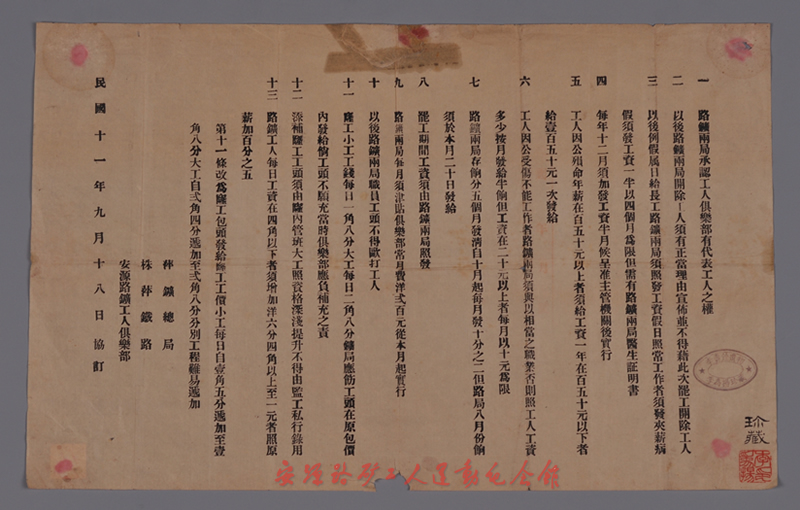 一　路鑛兩局承認工人俱樂部有代表工人之權
二　以後路鑛兩局開除工人須有正當理由宣佈並不得藉此次罷工開除工人
三　以後例假属日給長工路鑛兩局須照發工資假日照當工作者須發夾薪病
假須發工資一半以四個月為限但需有路鑛兩局醫生証明書
四　每年十二月須加發工資半月候呈准主管機關後實行
五　工人因公殞命年薪在百五十元以上者須給工資一年在百五十元以下者
給壹百五十元一次發給
六　工人因公受傷不能工作者路鑛兩局須與以相當之職業否則照工人工資
多少按月發給半餉但工資在二十元以上者每月以十元為限
七　路鑛兩局存餉分五個月發清自十月起每月發十分之二但路局八月份餉
須於本月二十日發給
八　罷工期間工資須由路鑛兩局照發
九　路鑛兩局每月須津貼俱樂部常月費洋弍百元從本月起實行
十　以後路鑛兩局職員工頭不得歐打工人
十一　窿工小工工錢每日一角八分大工每日二角八分鑛局應飭工頭在原包價
內發給倘工頭不願充當時俱樂部應負補充之責
十二　添補窿工工頭須由窿內管班大工照資格深淺提升不得由監工私行錄用
十三　路鑛工人每日工資在四角以下者須增加洋六分四角以上至一元者照原
薪加百分之五
第十一條改為窿工包頭發給窿工工價小工每日自壹角五分遞加至壹
角八分大工自弍角四分遞加至弍角八分分別工程難易遞加
萍鑛總局
株萍鐵路
安源路鑛工人俱樂部
民國十一年九月十八日協訂
珍藏
安源路矿工人运动纪念館